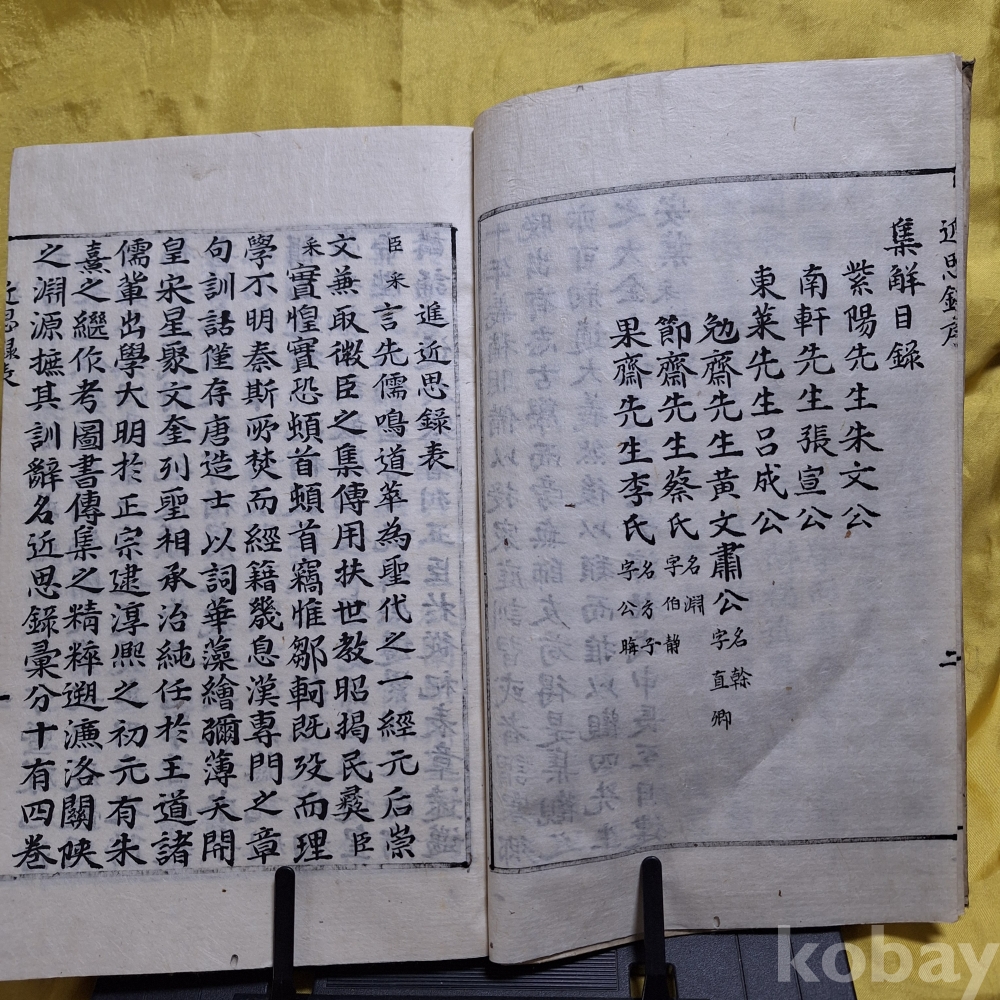 近思錄序
集解目錄
紫陽先生朱文公
南軒先生張宣公
東萊先生呂成公
勉齋先生黃文肅公名榦字直卿
節齋先生蔡氏名淵字伯靜
果齋先生李氏名方子字公晦
二
進近思錄表
臣采言先儒鳴道萃為聖代之一經元后崇
文兼取微臣之集傳用扶世教昭揭民彝臣
采實惶實恐頓首頓首竊惟鄒軻既歿而理
學不明秦斯所焚而經籍幾息漢專門之章
句訓詁僅存唐造士以詞華藻繪彌薄天開
皇宋星聚文奎列聖相承治純任於王道諸
儒輩出學大明於正宗逮淳熙之初元有朱
熹之繼作考圖書傳集之精粹遡濂洛關陜
之淵源摭其訓辭名近思錄彙分十有四卷
近思錄表
一
kobay